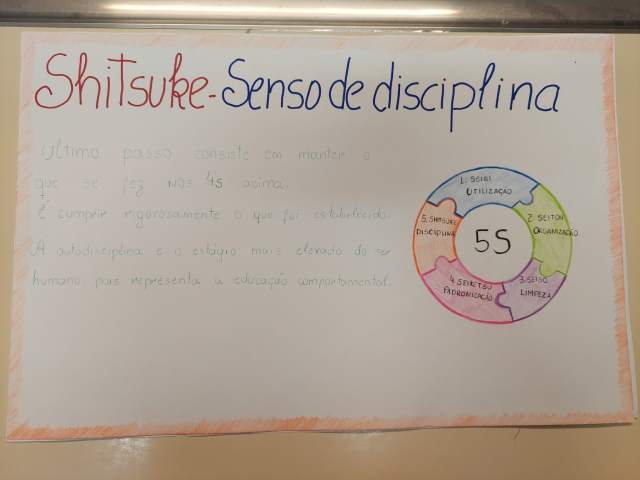 Shitsuke - Senso de disciplina
Ultimo passo consiste em manter o
que se fez nos 4s acima.
É cumprir rigorosamente o que foi estabelecido.
A autodisciplina e o estágio mais elevado do ser
humano pois representa a educação comportamental.
1. SEIRI
UTILIZAÇÃO
2. SEITON
ORGANIZAÇÃO
3. SEISO
LIMPEZA
4. SEIKETSU
PADRONIZAÇÃO
5. SHITSUKE
DISCIPLINA
5S